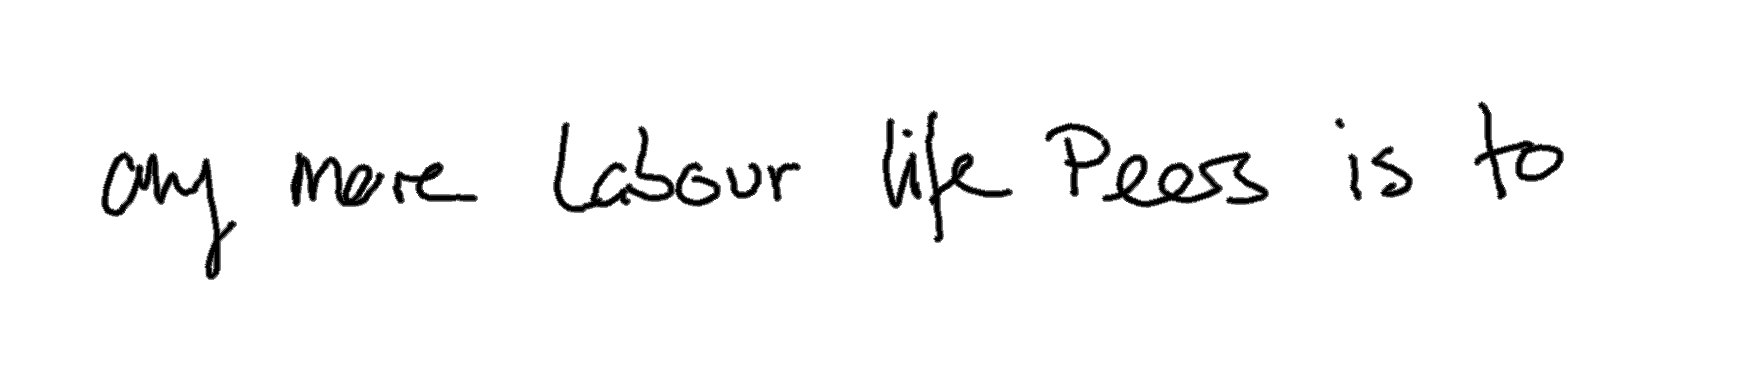 any more Labour life Peers is to